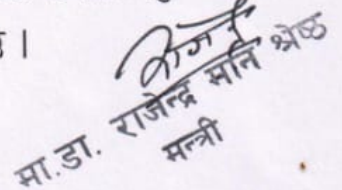 ।
मा.डा. राजेन्द्र मान श्रेष्ठ
मन्त्री